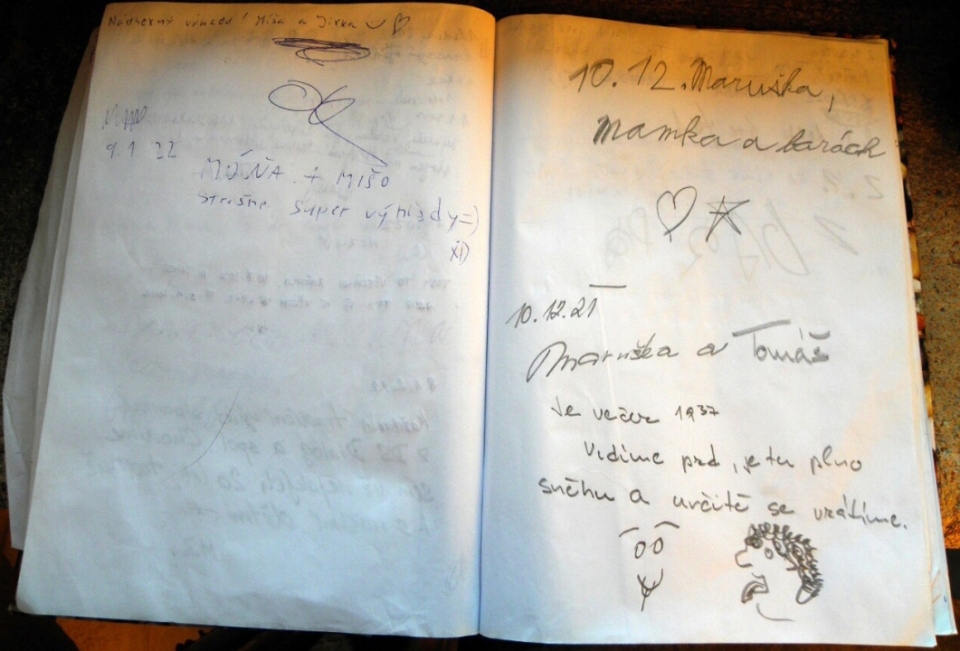 Nádherný výhled! Míša a Jirka
9.1 22
MÓŇA + MIŠO
strašně super výhledy =)
XD
10.12. Maruška,
Mamka a barách
10.12.21
Maruška a Tomáš
Je večer 1937
Vidíme prd, je tu plno
sněhu a určitě se vrátíme.